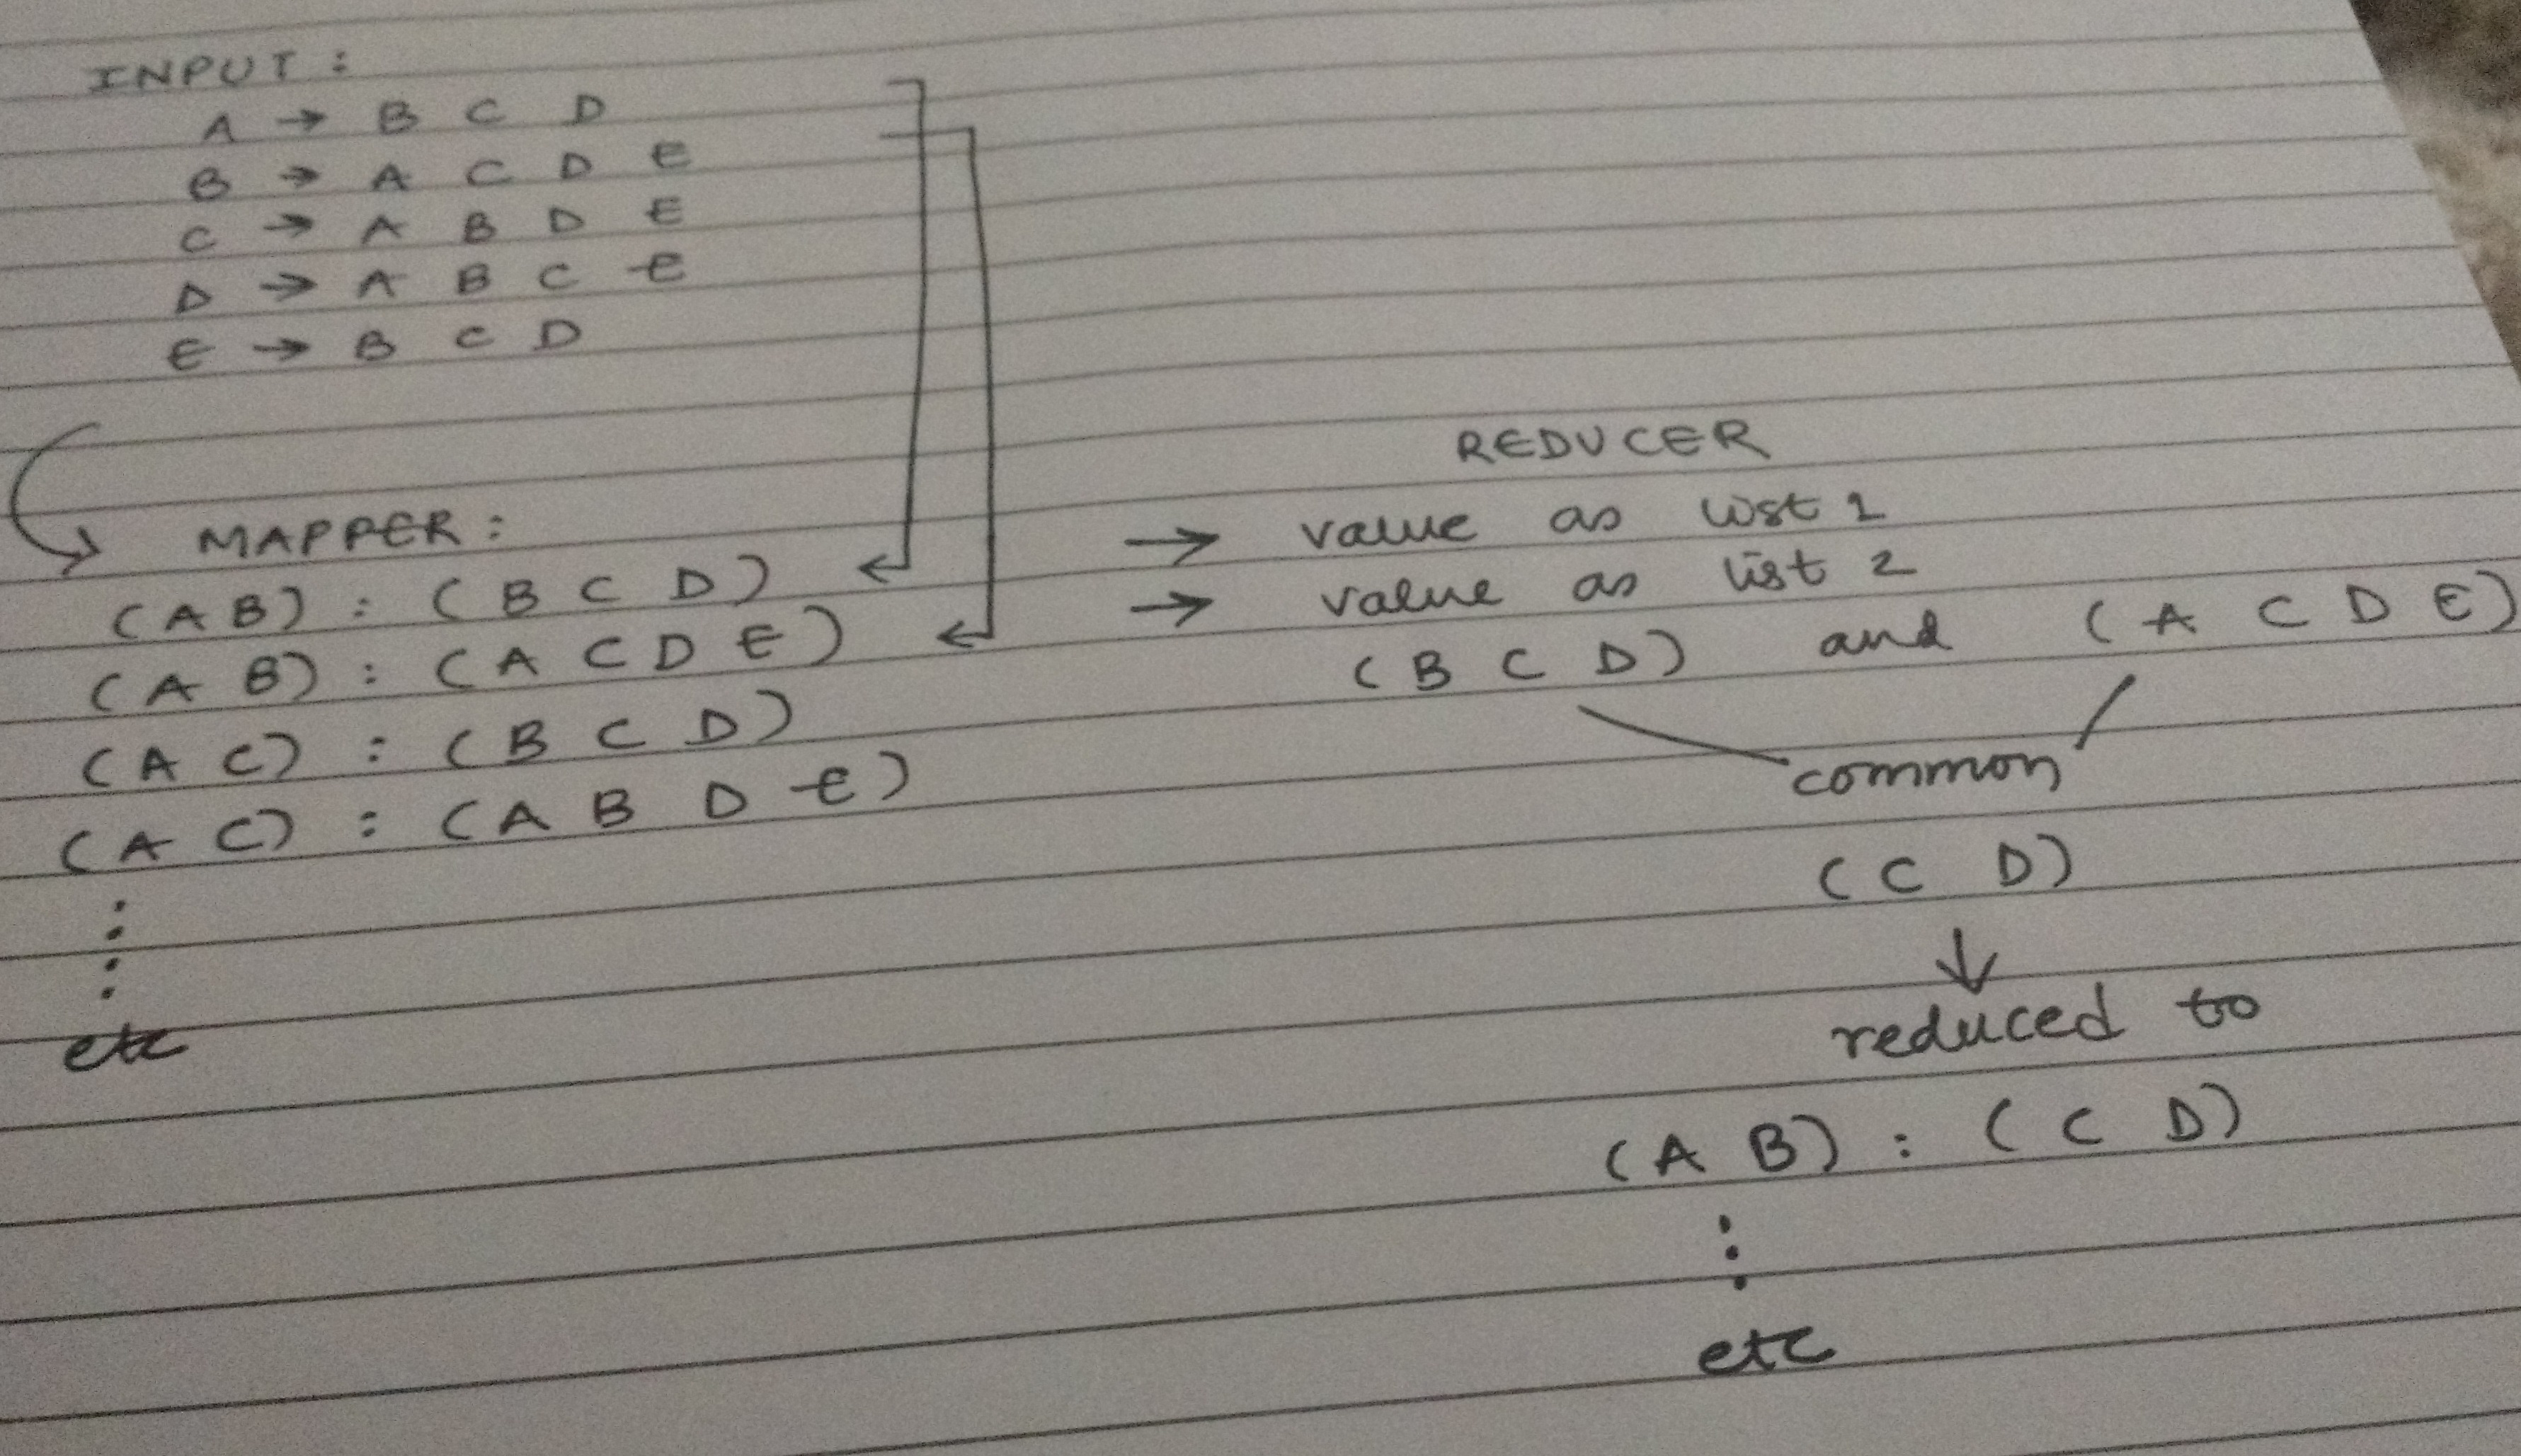 INPUT :
A → B C D
B → A C D E
C → A B D E
D → A B C E
E → B C D
MAPPER :
(A B) : (B C D)
(A B) : (A C D E)
(A C) : (B C D)
(A C) : (A B D E)
⋮
etc
REDUCER
→ value as list 1
→ value as list 2
(B C D) and (A C D E)
common
(C D)
↓
reduced to
(A B) : (C D)
⋮
etc